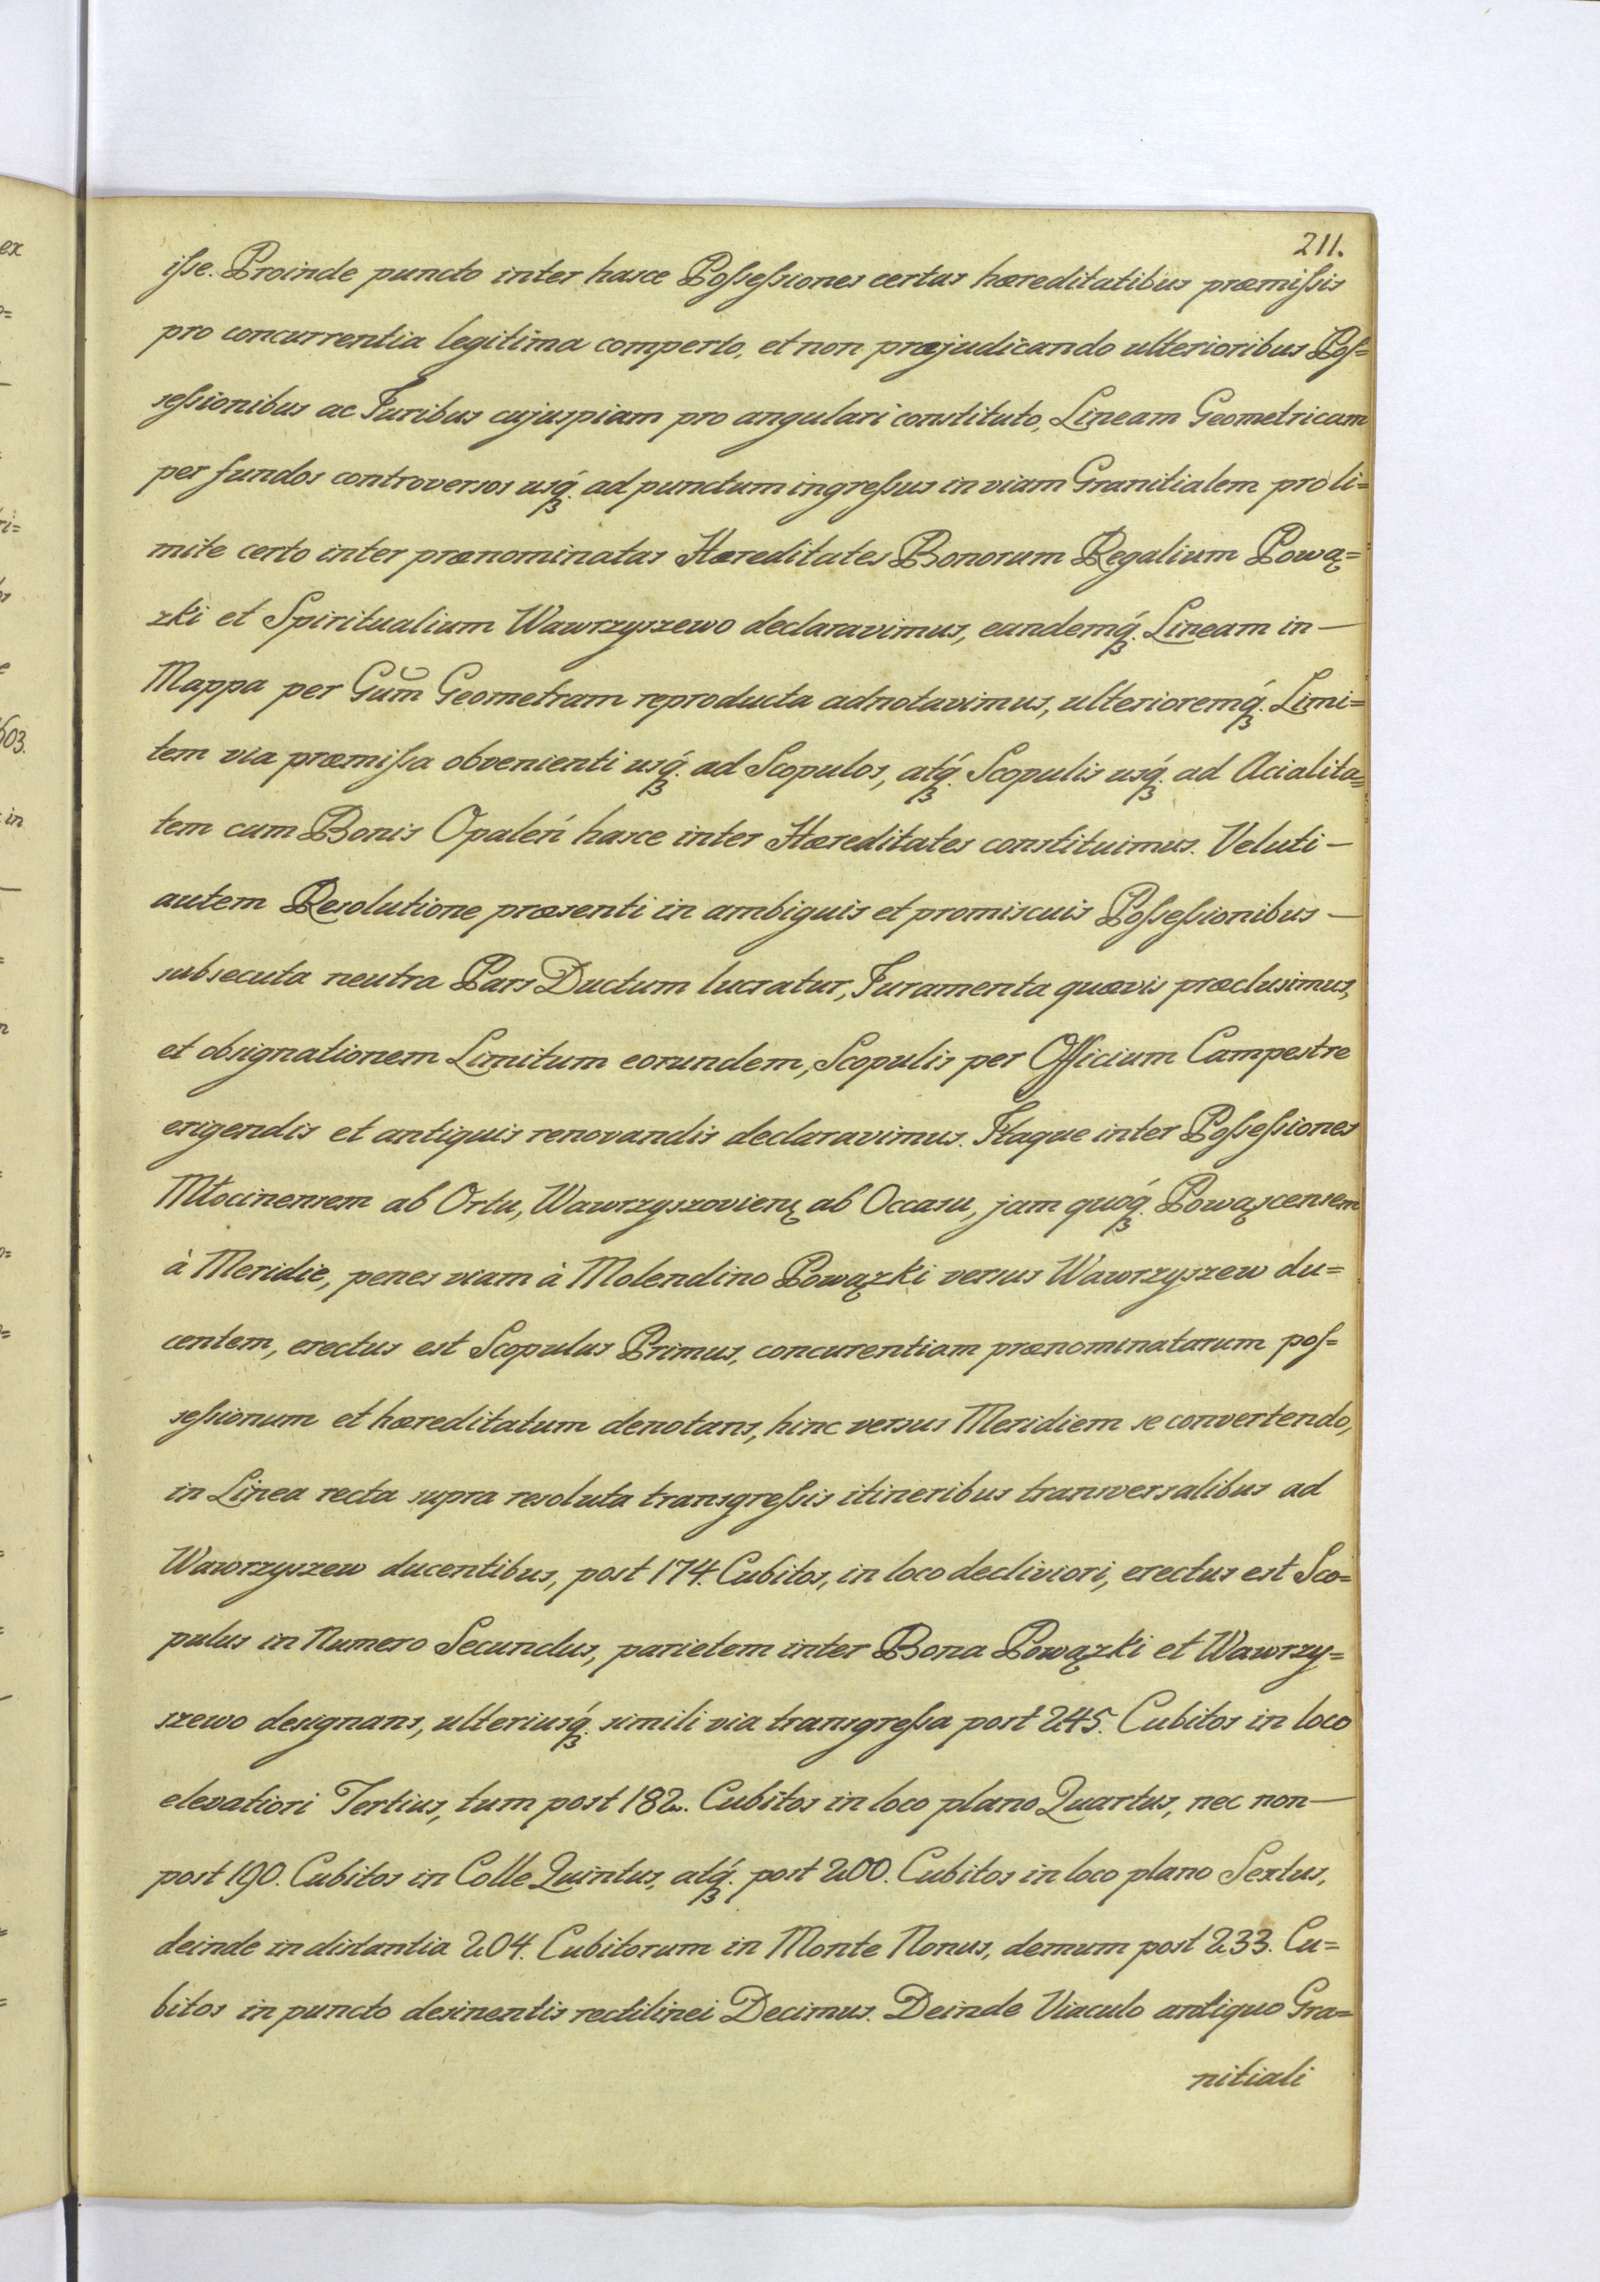 211.
iſse. Proinde puncto inter hasce Poſseſsiones certas hæreditatibus præmiſsis
pro concurrentia legitima comperto, et non præjudicando ulterioribus Poſ=
seſsionibus ac Juribus cujuspiam pro angulari constituto, Lineam Geometricam
per fundos controversos usq́. ad punctum ingreſsus in viam Granitialem pro li=
mite certo inter prænominatas Hæreditates Bonorum Regalium Pową=
zki et Spiritualium Wawrzyszewo declaravimus, eandemq́. Lineam in —
Mappa per Gum̃ Geometram reproducta adnotavimus, ulterioremq́. Limi=
tem via præmiſsa obvenienti usq́. ad Scopulos, atq́. Scopulis usq́. ad Acialita=
tem cum Bonis Opaleń hasce inter Hæreditates constituimus. Veluti —
autem Resolutione præsenti in ambiguis et promiscuis Poſseſsionibus —
subsecuta neutra Pars Ductum lucratur, Juramenta quævis præclusimus,
et obsignationem Limitum eorundem, Scopulis per Officium Campestre
erigendis et antiquis renovandis declaravimus. Itaque inter Poſseſsiones
Młocinensem ab Ortu, Wawrzyszovienę ab Occasu, jam quoq́. Powązcensem
à Meridie, penes viam à Molendino Powązki versus Wawrzyszew du=
centem, erectus est Scopulus Primus, concurentiam prænominatarum poſ=
seſsionum et hæreditatum denotans, hinc versus Meridiem se convertendo,
in Linea recta supra resoluta transgreſsis itineribus transversalibus ad
Wawrzyszew ducentibus, post 174. Cubitos, in loco decliviori, erectus est Sco=
pulus in Numero Secundus, parietem inter Bona Powązki et Wawrzy=
szewo designans, ulteriusq́. simili via transgreſsa post 245. Cubitos in loco
elevatiori Tertius, tum post 182. Cubitos in loco plano Quartus, nec non —
post 190. Cubitos in Colle Quintus, atq́. post 200. Cubitos in loco plano Sextus,
deinde in distantia 204. Cubitorum in Monte Nonus, demum post 233. Cu=
bitos in puncto desinentis rectilinei Decimus. Deinde Viaculo antiquo Gra=
nitiali